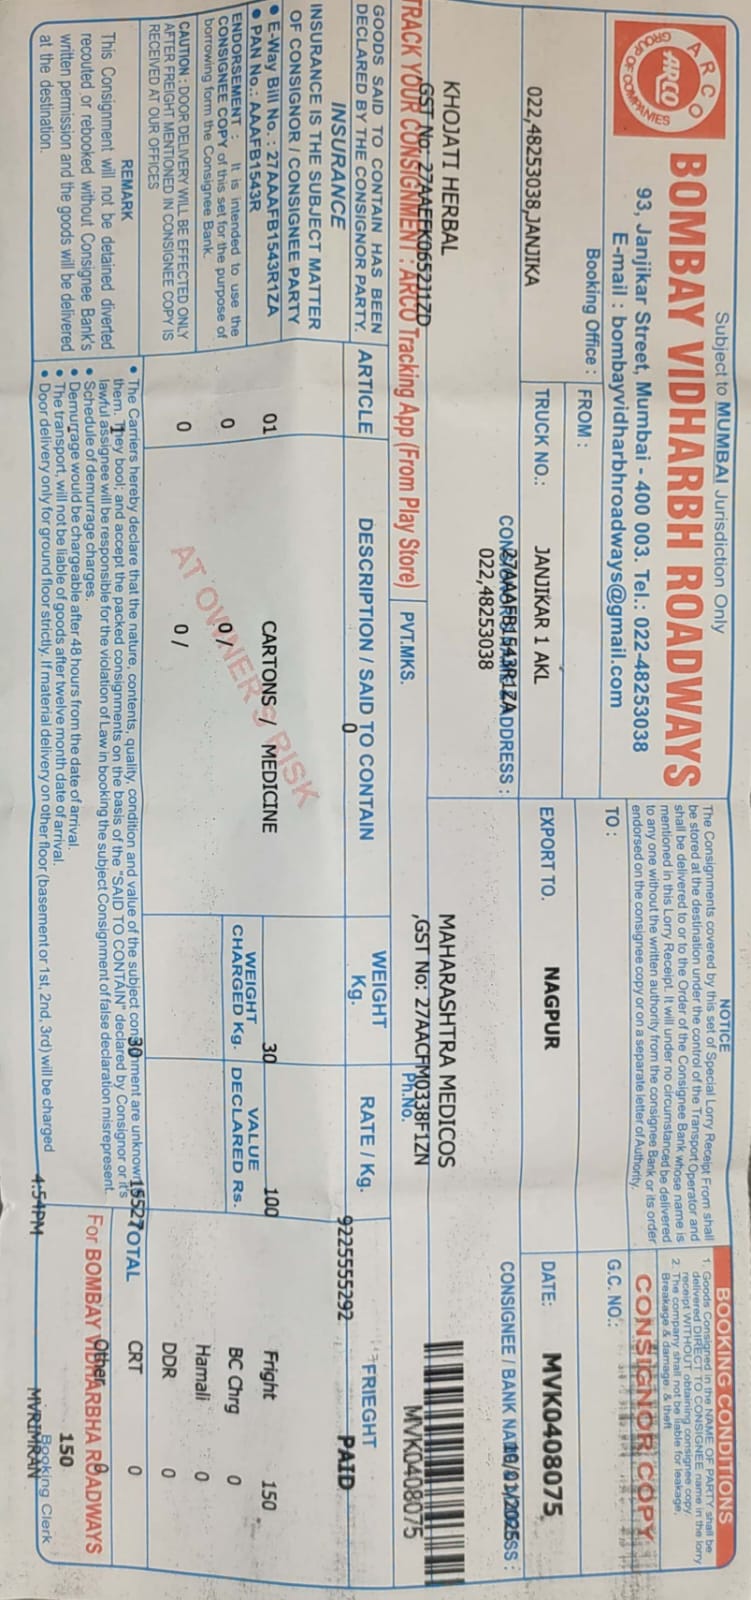 Subject to MUMBAI Jurisdiction Only
ARCO
GROUP OF COMPANIES
ARCO
BOMBAY VIDHARBH ROADWAYS
93, Janjikar Street, Mumbai - 400 003. Tel.: 022-48253038
E-mail : bombayvidharbhroadways@gmail.com
NOTICE
The Consignments covered by this set of Special Lorry Receipt From shall
be stored at the destination under the control of the Transport Operator and
shall be delivered to or to the Order of the Consignee Bank whose name is
mentioned in this Lorry Receipt. It will under no circumstanced be delivered
to any one without the written authority from the consignee Bank or its order
endorsed on the consignee copy or on a separate letter of Authority.
BOOKING CONDITIONS
1. Goods Consigned in the NAME OF PARTY shall be
delivered DIRECT TO CONSIGNEE name in the lorry
receipt WITHOUT obtaining consignee copy.
2. The company shall not be liable for leakage,
Breakage & damage & theft
CONSIGNOR COPY
Booking Office :
FROM :
TO :
G.C. NO.:
022,48253038,JANJIKA
TRUCK NO.:
JANJIKAR 1 AKL
EXPORT TO.
NAGPUR
DATE:
MVK0408075
ADDRESS :
27AAAFB1543R1ZA
022,48253038
CONSIGNEE / BANK NA
10/01/2025
SS :
KHOJATI HERBAL
GST No: 27AAEFK065211ZD
MAHARASHTRA MEDICOS
,GST No: 27AACFM0338F1ZN
Ph.No.
MVK0408075
TRACK YOUR CONSIGNMENT : ARCO Tracking App (From Play Store)
PVT.MKS.
GOODS SAID TO CONTAIN HAS BEEN
DECLARED BY THE CONSIGNOR PARTY.
ARTICLE
DESCRIPTION / SAID TO CONTAIN
0
WEIGHT
Kg.
RATE / Kg.
FRIEGHT
9225555292
PAID
INSURANCE
INSURANCE IS THE SUBJECT MATTER
OF CONSIGNOR / CONSIGNEE PARTY
• E-Way Bill No. : 27AAAFB1543R1ZA
• PAN No.: AAAFB1543R
01
CARTONS / MEDICINE
30
100
Fright 150
ENDORSEMENT : It is intended to use the
CONSIGNEE COPY of this set for the purpose of
borrowing form the Consignee Bank.
0
0 /
WEIGHT
CHARGED Kg.
VALUE
DECLARED Rs.
BC Chrg 0
Hamali 0
AT OWNER'S RISK
CAUTION : DOOR DELIVERY WILL BE EFFECTED ONLY
AFTER FREIGHT MENTIONED IN CONSIGNEE COPY IS
RECEIVED AT OUR OFFICES
0
0 /
DDR 0
30
15527
TOTAL
CRT 0
REMARK
This Consignment will not be detained diverted
recouted or rebooked without Consignee Bank's
written permission and the goods will be delivered
at the destination.
• The Carriers hereby declare that the nature, contents, quality, condition and value of the subject consignment are unknown
them. They bool; and accept the packed consignments on the basis of the "SAID TO CONTAIN" declared by Consignor or it's
lawful assignee will be responsible for the violation of Law in booking the subject Consignment of false declaration misrepresent.
• Schedule of demurrage charges.
• Demurrage would be chargeable after 48 hours from the date of arrival.
• The transport, will not be liable of goods after twelve month date of arrival.
• Door delivery only for ground floor strictly. If material delivery on other floor (basement or 1st, 2nd, 3rd) will be charged
1
Other 0
For BOMBAY VIDARBHA ROADWAYS
150
Booking Clerk
4:54PM
MVRIMRAN